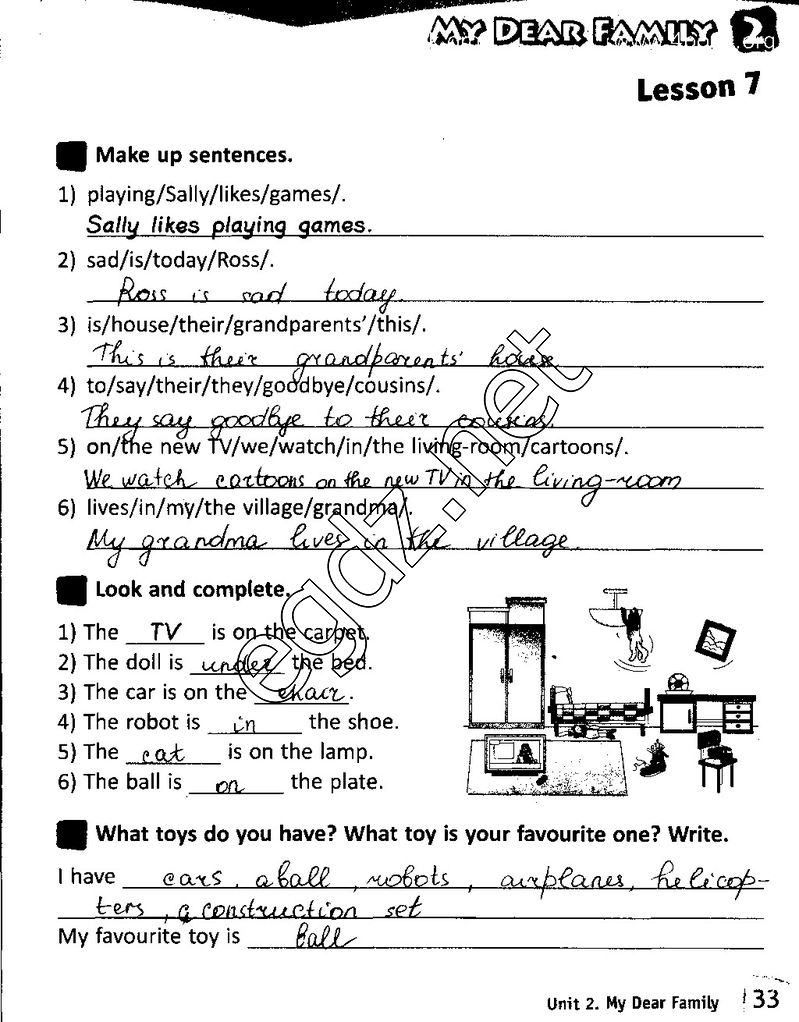 MY DEAR FAMILY 2
Lesson 7
Make up sentences.
1) playing/Sally/likes/games/.
Sally likes playing games.
2) sad/is/today/Ross/.
Ross is sad today.
3) is/house/their/grandparents'/this/.
This is their grandparents' house
4) to/say/their/they/goodbye/cousins/.
They say goodbye to their cousins.
5) on/the new TV/we/watch/in/the living-room/cartoons/.
We watch cartoons on the new TV in the living-room
6) lives/in/my/the village/grandma/.
My grandma lives in the village.
Look and complete.
1) The TV is on the carpet.
2) The doll is under the bed.
3) The car is on the chair.
4) The robot is in the shoe.
5) The cat is on the lamp.
6) The ball is on the plate.
egdz.net
What toys do you have? What toy is your favourite one? Write.
I have cars, a ball, robots, airplanes, helicop-
ters, a construction set
My favourite toy is ball
Unit 2. My Dear Family 33